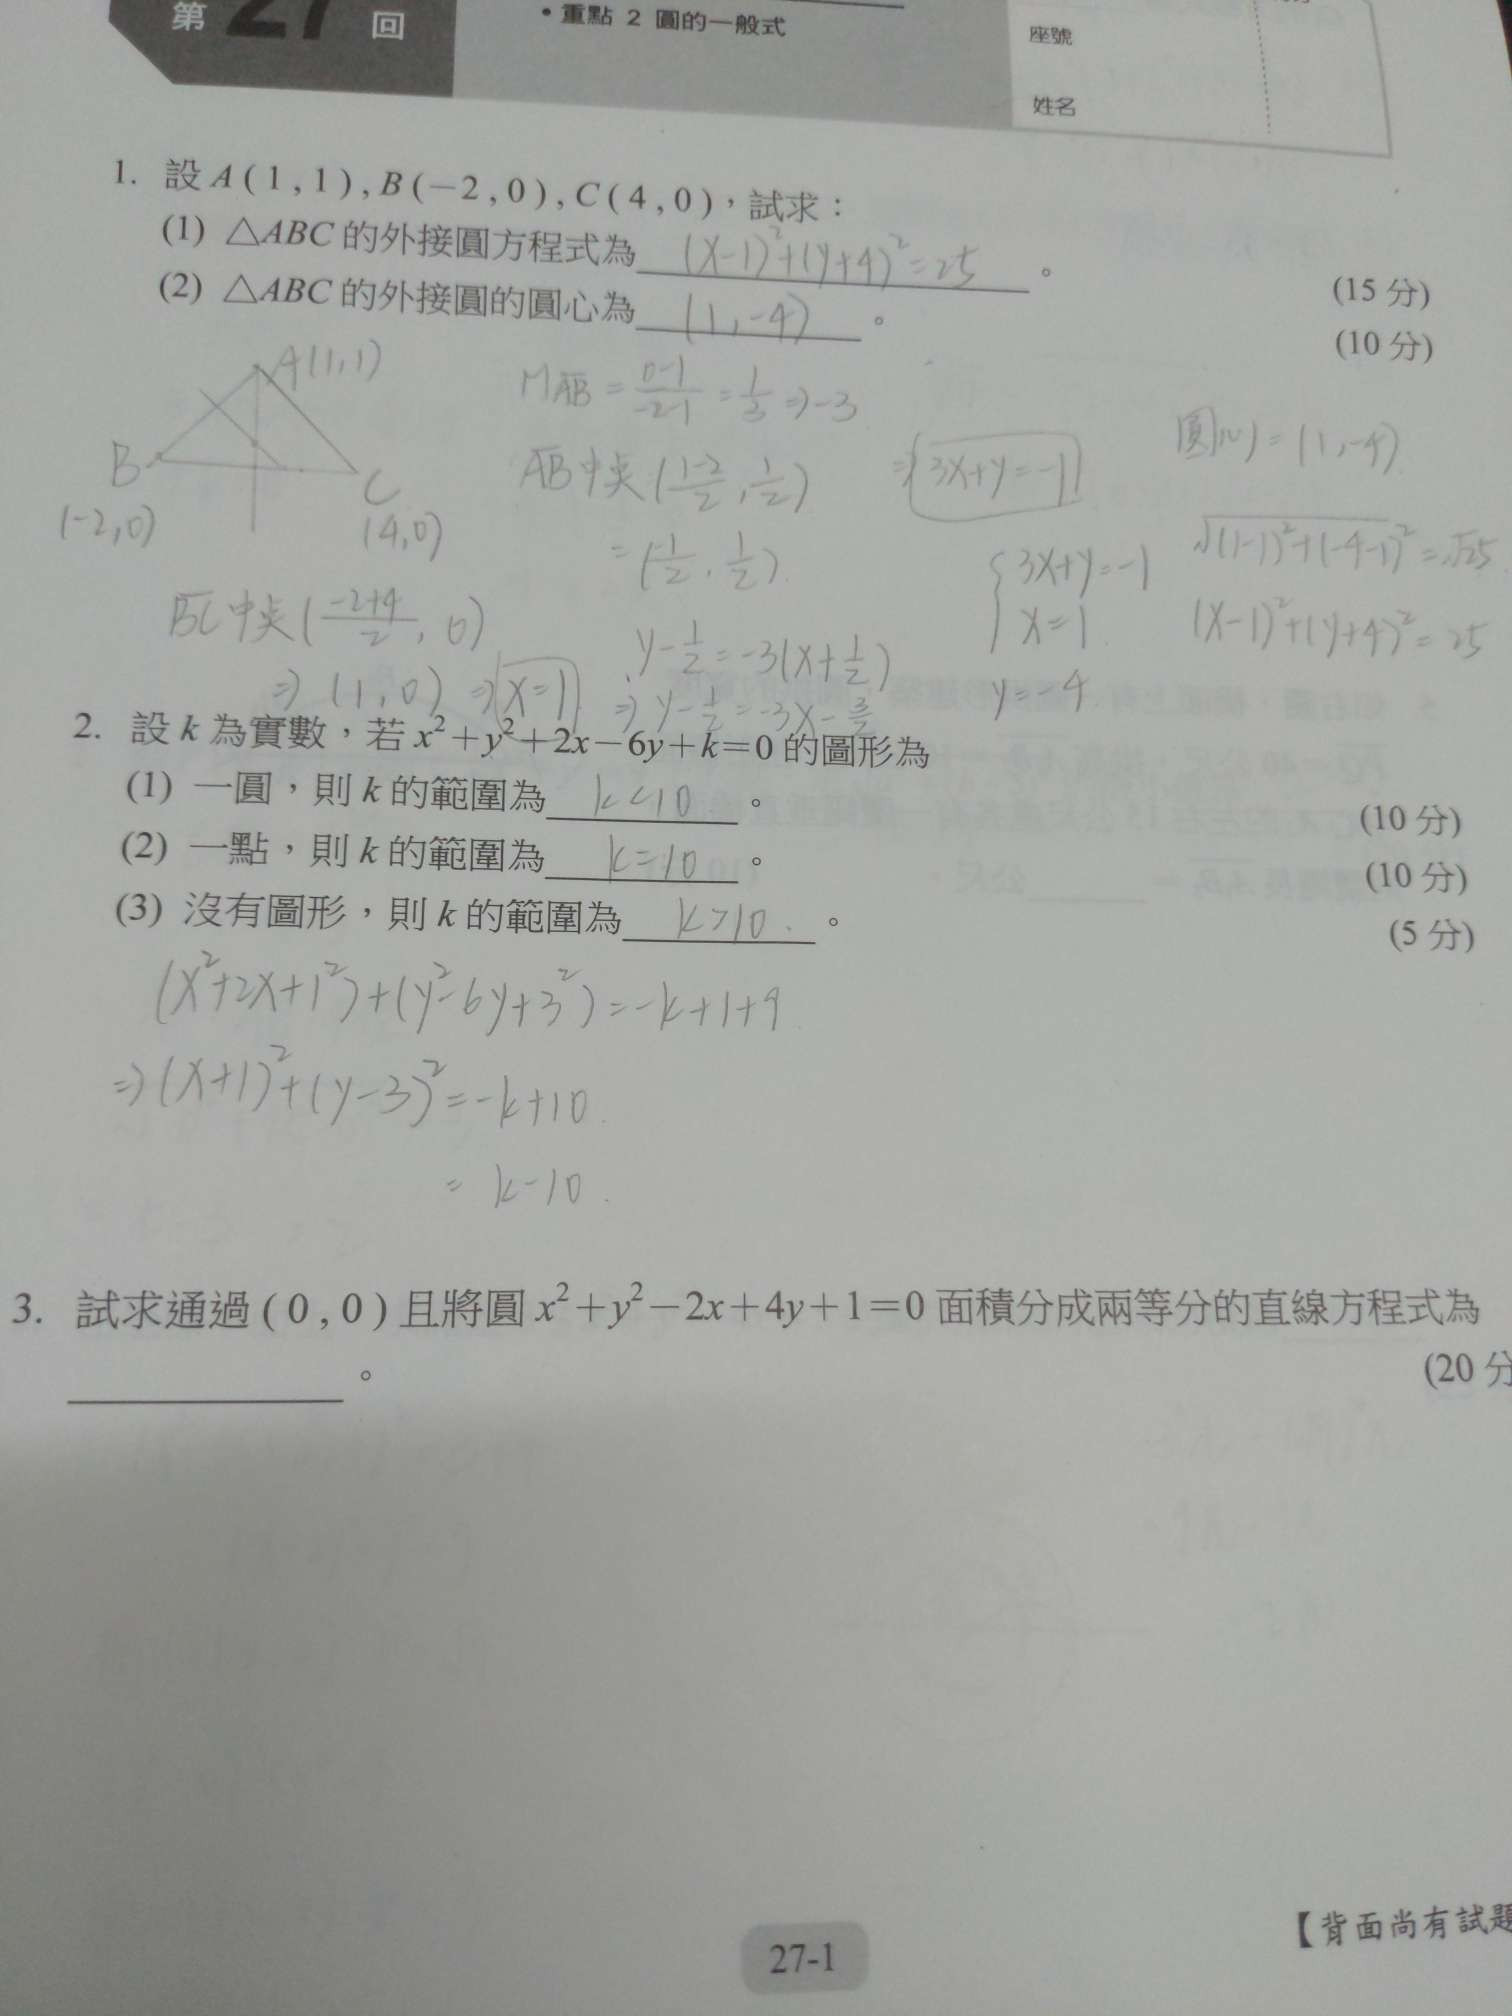 第 27 回
• 重點 2 圓的一般式
座號
姓名
1. 設 A ( 1 , 1 ) , B ( −2 , 0 ) , C ( 4 , 0 ) ,試求:
(1) △ABC 的外接圓方程式為 (x-1)²+(y+4)²=25 。 (15 分)
(2) △ABC 的外接圓的圓心為 (1,-4) 。 (10 分)
A(1,1)
B
(-2,0)
C
(4,0)
BC中点(-2+4/2, 0)
⇒ (1,0) ⇒ x=1
M AB = 0-1/-2-1 = 1/3 ⇒ -3
AB中点(1-2/2, 1/2)
= (-1/2, 1/2)
y-1/2=-3(x+1/2)
⇒ y-1/2=-3x-3/2
⇒ 3x+y=-1
3x+y=-1
x=1
y=-4
圓心=(1,-4)
√(1-1)²+(-4-1)²=√25
(x-1)²+(y+4)²=25
2. 設 k 為實數,若 x²+y²+2x−6y+k=0 的圖形為
(1) 一圓,則 k 的範圍為 k<10 。 (10 分)
(2) 一點,則 k 的範圍為 k=10 。 (10 分)
(3) 沒有圖形,則 k 的範圍為 k>10 。 (5 分)
(x²+2x+1²)+(y²-6y+3²)=-k+1+9
⇒(x+1)²+(y-3)²=-k+10
= k-10
3. 試求通過 ( 0 , 0 ) 且將圓 x²+y²−2x+4y+1=0 面積分成兩等分的直線方程式為
。 (20 分
【背面尚有試題
27-1